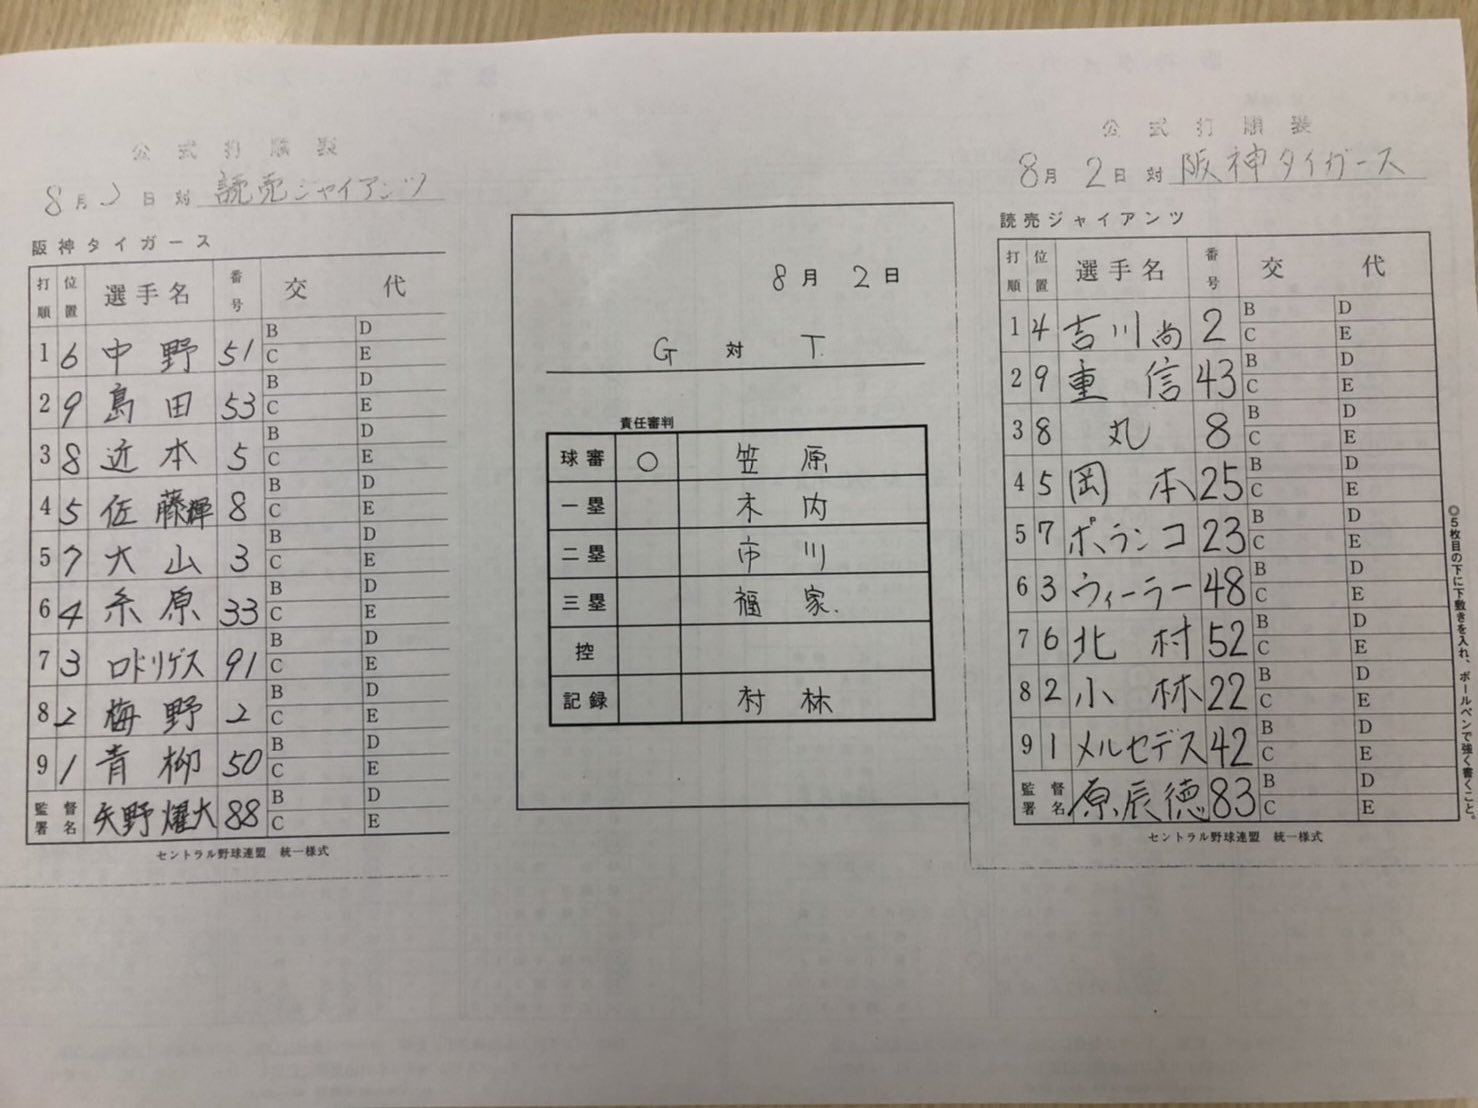 公式打順表
8月2日 対 読売ジャイアンツ
阪神タイガース
打順 位置 選手名 番号 交代
1 6 中野 51 B D C E
2 9 島田 53 B D C E
3 8 近本 5 B D C E
4 5 佐藤輝 8 B D C E
5 7 大山 3 B D C E
6 4 糸原 33 B D C E
7 3 ロドリゲス 91 B D C E
8 2 梅野 2 B D C E
9 1 青柳 50 B D C E
監督署名 矢野燿大 88 B D C E
セントラル野球連盟 統一様式
8月2日
G 対 T.
責任審判
球審 ○ 笠原
一塁 木内
二塁 市川
三塁 福家.
控
記録 村林
公式打順表
8月2日 対 阪神タイガース
読売ジャイアンツ
打順 位置 選手名 番号 交代
1 4 吉川尚 2 B D C E
2 9 重信 43 B D C E
3 8 丸 8 B D C E
4 5 岡本 25 B D C E
5 7 ポランコ 23 B D C E
6 3 ウィーラー 48 B D C E
7 6 北村 52 B D C E
8 2 小林 22 B D C E
9 1 メルセデス 42 B D C E
監督署名 原辰徳 83 B D C E
セントラル野球連盟 統一様式
◎5枚目の下に下敷きを入れ、ボールペンで強く書くこと。